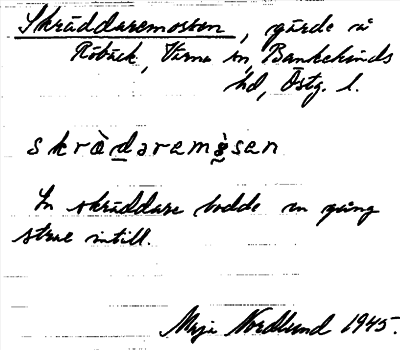 Skräddaremossen, gärde å
Röbäck, Värna sn, Bankekinds
hd, Östg. l.
skrädaremosen
En skräddare bodde en gång
strax intill.
Maja Nordlund 1945.